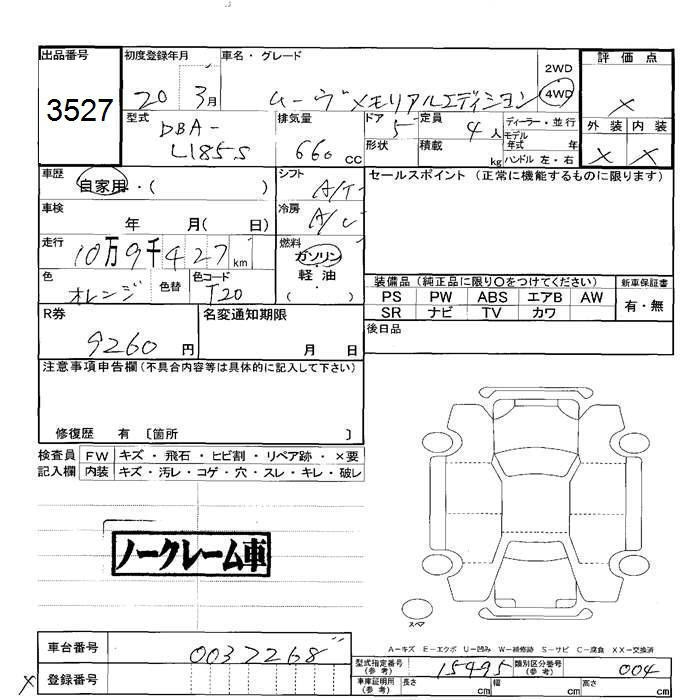 出品番号
3527
初度登録年月
20 3月
車名・グレード
ムーヴ メモリアルエディション
2WD
4WD
評価点
×
外装 内装
× ×
型式
DBA-
L185S
排気量
660 CC
ドア 5
形状
定員 4人
積載 kg
ディーラー・並行
モデル
年式 年
ハンドル 左・右
車歴
自家用・( )
シフト
A/T
セールスポイント (正常に機能するものに限ります)
車検
年 月( 日)
冷房
A/C
走行
10万9千427km
燃料
ガソリン
軽・油
( )
色
オレンジ
色替
色コード
T20
装備品 (純正品に限り○をつけてください)
PS PW ABS エアB AW
SR ナビ TV カワ
新車保証書
有・無
R券
9260 円
名変通知期限
月 日
後日品
注意事項申告欄 (不具合内容等は具体的に記入して下さい)
修復歴 有 〔箇所 〕
検査員
記入欄
FW キズ・飛石・ヒビ割・リペア跡・×要
内装 キズ・汚レ・コゲ・穴・スレ・キレ・破レ
ノークレーム車
スペア
A-キズ E-エクボ U-凹み W-補修跡 S-サビ C-腐食 XX-交換済
車台番号
0037268
× 登録番号
型式指定番号
(参考)
15495
類別区分番号
(参考)
004
車庫証明用
(参考)
長さ cm 幅 cm 高さ cm